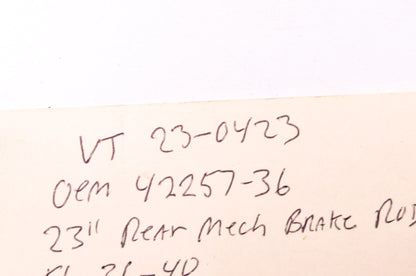 VT 23-0423
OEM 42257-36
23" REAR MECH BRAKE ROD
36-40